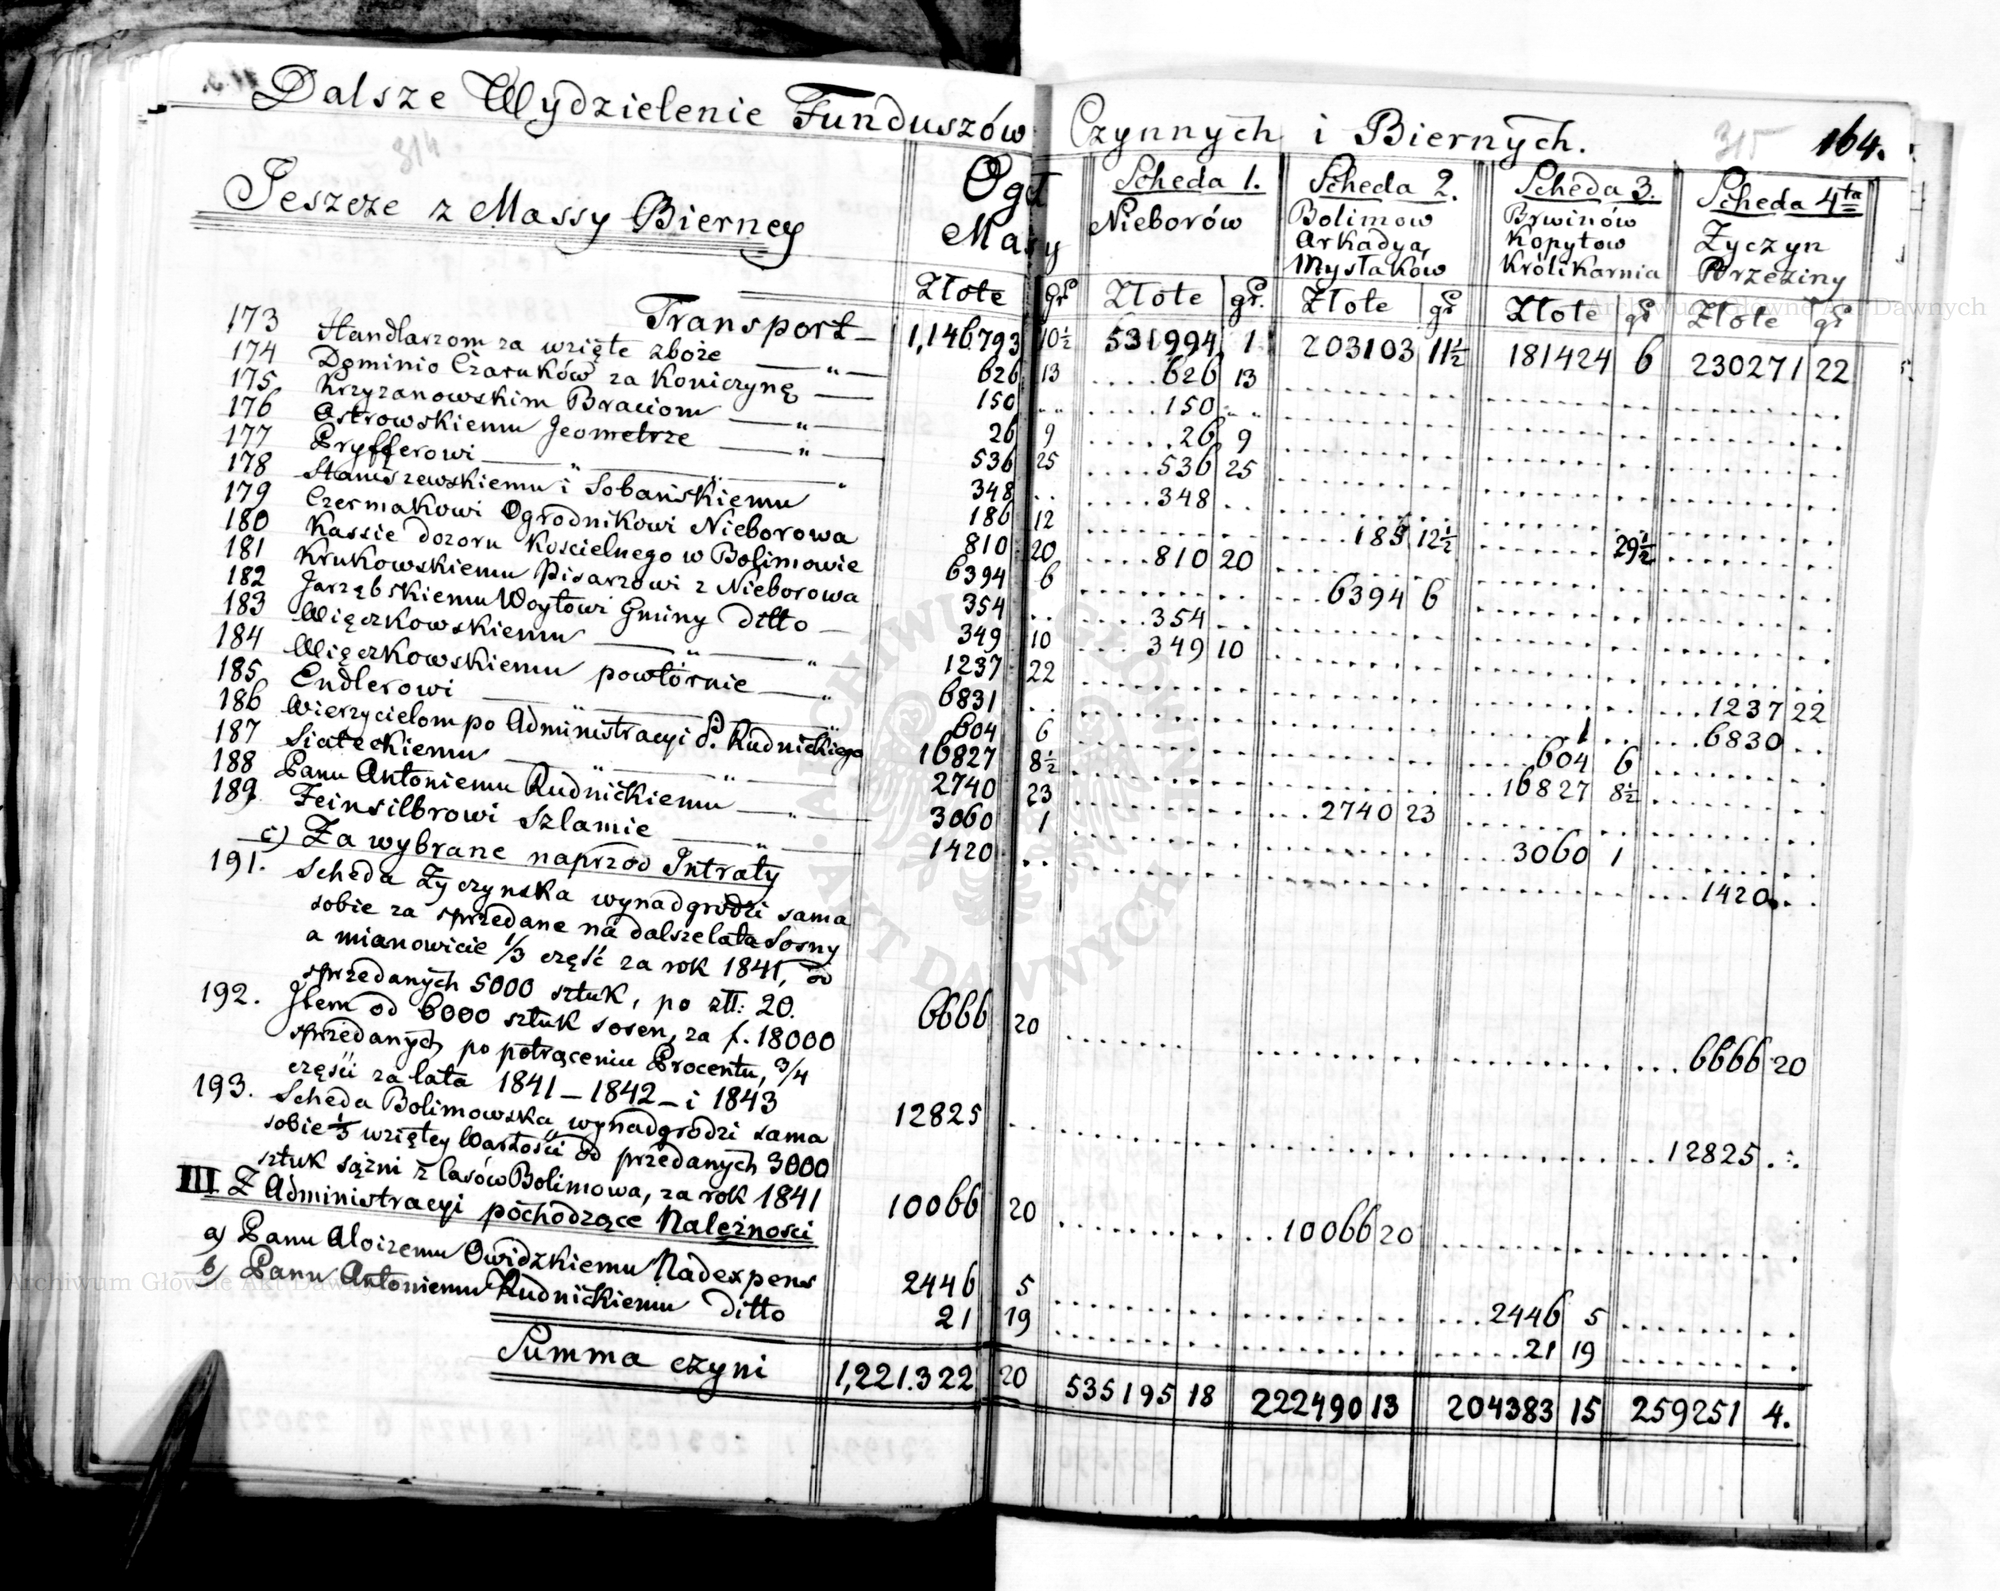 Dalsze Wydzielenie Funduszów Czynnych i Biernych.
314
315
164.
Jeszcze z Massy Bierney
Ogół Massy
Scheda 1.
Nieborów
Scheda 2.
Bolimow
Arkadya
Mysłaków
Scheda 3.
Brwinów
Kopytow
Królikarnia
Scheda 4ta
Zyczyn
Brzeziny
Złote gr Złote gr. Złote gr Złote gr Złote gr
Transport 1,146.793 10½ 531994 1 203103 11½ 181424 6 230271 22
173 Handlarzom za wzięte zboże — " — 626 13 626 13
174 Dominio Czarukow za Koniczynę — 150 150
175 Krzyzanowskim Braciom — " — 26 9 26 9
176 Ostrowskiemu Jeometrze — " — 536 25 536 25
177 Pryfferowi — " — " 348 348
178 Staniszewskiemu i Sobańskiemu 186 12 185 12½ 29½
179 Czermakowi Ogrodnikowi Nieborowa 810 20 810 20
180 Kassie dozoru Koscielnego w Bolimowie 6394 6 6394 6
181 Krukowskiemu Pisarzowi z Nieborowa 354 354
182 Jarzębskiemu Woytowi Gminy ditto — 349 10 349 10
183 Więczkowskiemu — " — " 1237 22 1237 22
184 Więczkowskiemu powtórnie — " 6831 1 6830
185 Endlerowi — " — " 604 6 604 6
186 Wierzycielom po Administracyi P. Rudnickiego 16827 8½ 16827 8½
187 Siateckiemu — " — " 2740 23 2740 23
188 Panu Antoniemu Rudnickiemu — " 3060 1 3060 1
189 Feinsilbrowi Szlamie — " — 1420 1420
c) Za wybrane naprzod Intraty
191. Scheda Zyczynska wynadgrodzi sama
sobie za sprzedane na dalsze lata Sosny
a mianowicie 1/3 część za rok 1841, od
sprzedanych 5000 sztuk, po zł: 20. 6666 20 6666 20
192. Item od 6000 sztuk sosen, za f. 18000
sprzedanych, po potrąceniu Procentu, 3/4
części za lata 1841 — 1842 — i 1843 12825 12825
193. Scheda Bolimowska wynadgrodzi sama
sobie 1/3 wziętey Wartości od przedanych 3000
sztuk sążni z lasów Bolimowa, za rok 1841 10066 20 10066 20
III Z Administracyi pochodzące Należnosci
a) Panu Aloizemu Owidzkiemu Nadexpens 2446 5 2446 5
b) Panu Antoniemu Rudnickiemu ditto 21 19 21 19
Summa czyni 1,221.322 20 535195 18 222490 13 204383 15 259251 4.
Archiwum Główne Akt Dawnych
Archiwum Główne Akt Dawnych
ARCHIWUM GŁÓWNE AKT DAWNYCH